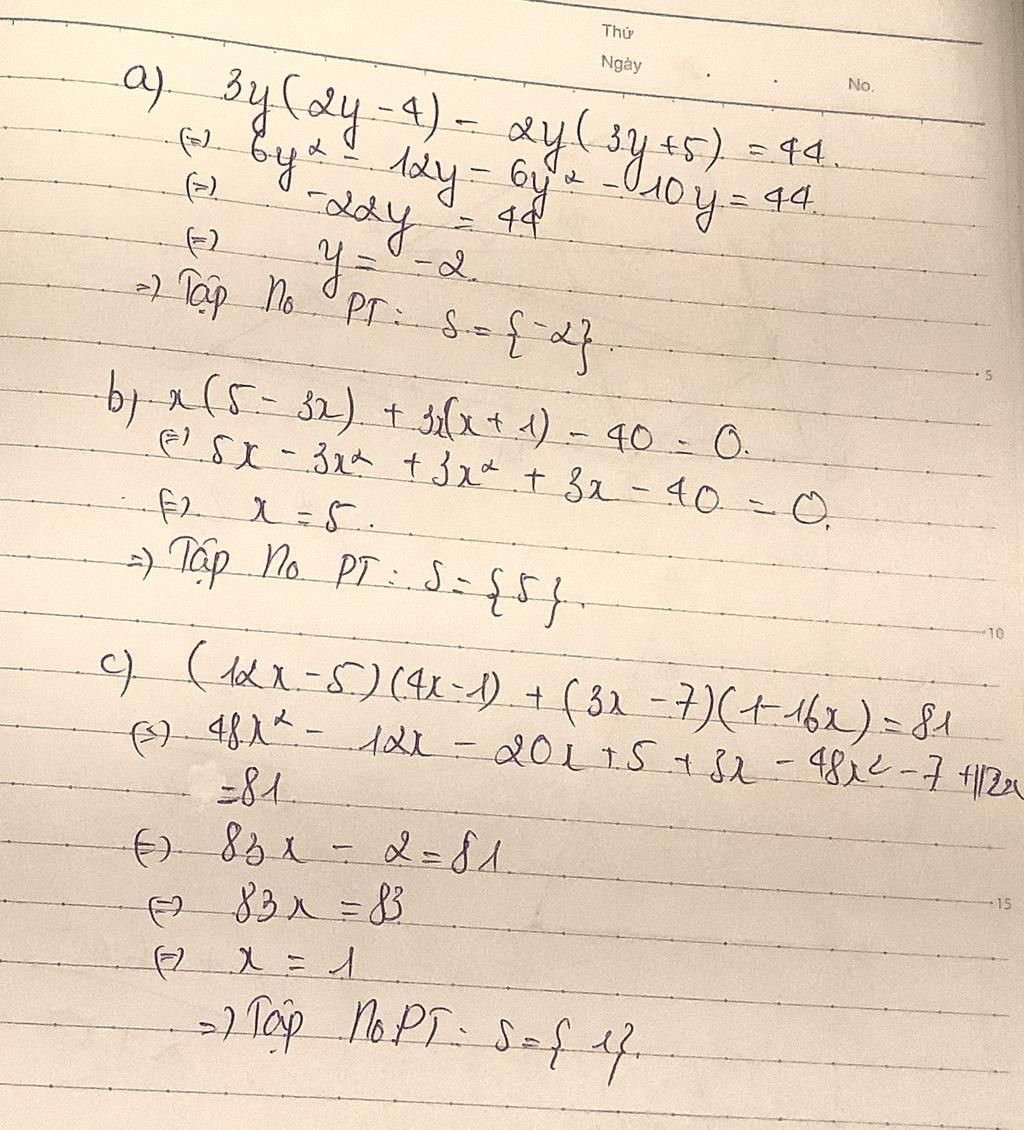 Thứ
Ngày
No.
a) 3y(2y-4) - 2y(3y+5) = 44.
(=) 6y² - 12y - 6y² - 10y = 44.
(=) -22y = 44
(=) y = -2.
=) Tập No PT: S = {-2}.
5
b) x(5 - 3x) + 3x(x + 1) - 40 = 0.
(=) 5x - 3x² + 3x² + 3x - 40 = 0.
(=) x = 5.
=) Tập No PT: S = {5}.
10
c) (12x - 5)(4x - 1) + (3x - 7)(1 - 16x) = 81
(=) 48x² - 12x - 20x + 5 + 3x - 48x² - 7 + 112x
= 81
(=) 83x - 2 = 81
(=) 83x = 83
15
(=) x = 1
=) Tập No PT: S = {1}.